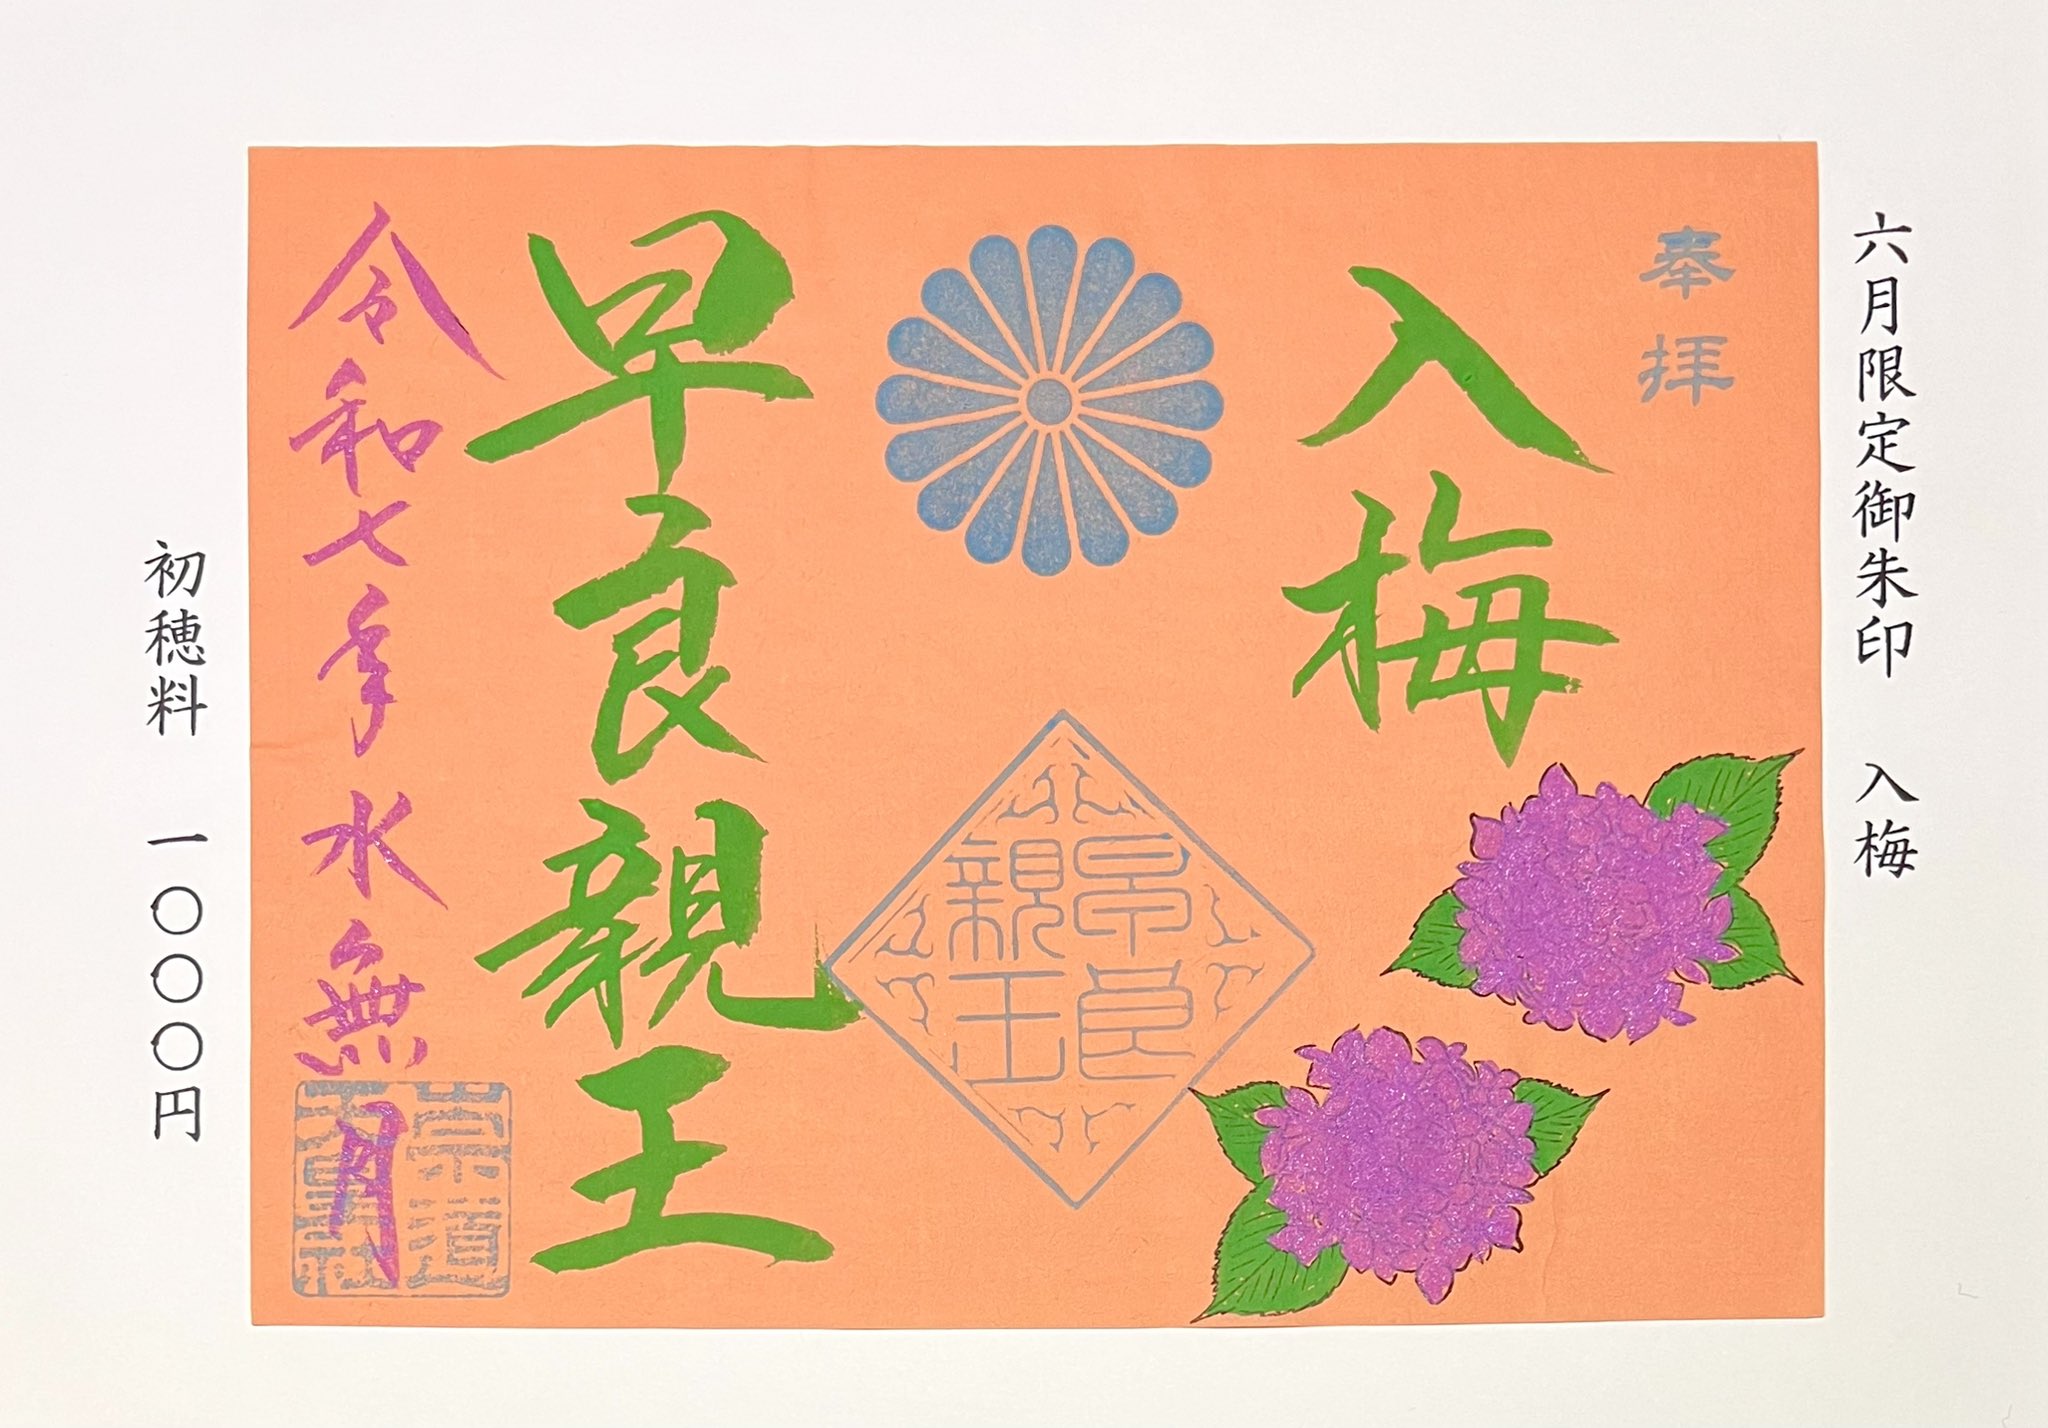 六月限定御朱印　入梅
奉拝
入梅
早良
親王
早良親王
令和七年水無月
崇道
天皇社
初穂料　一〇〇〇円